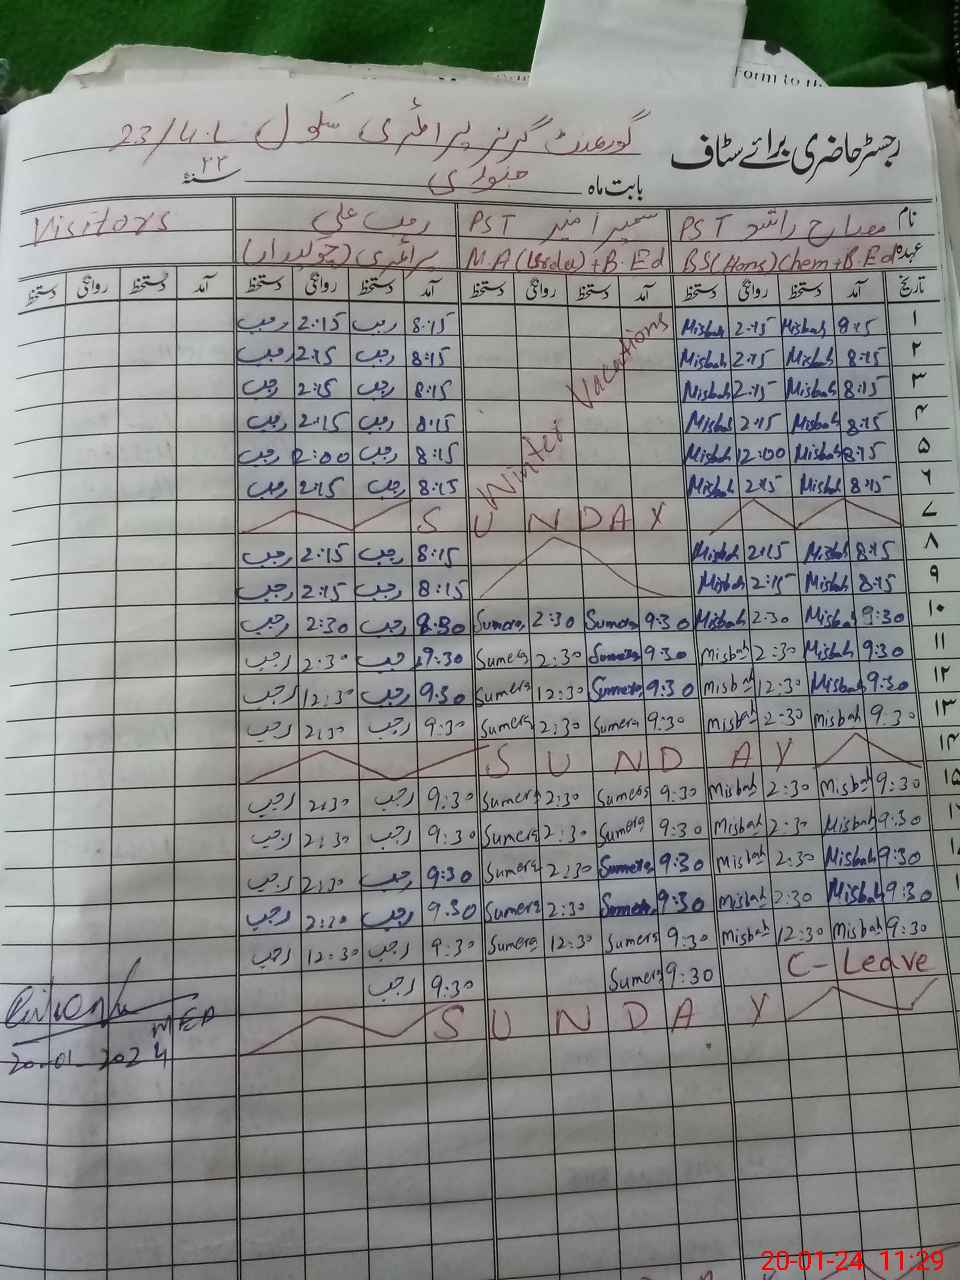 Form to the
رجسٹر حاضری برائے سٹاف گورنمنٹ گرلز پرائمری سکول 23/4.L
بابت ماہ جنوری سنۂ ۲۴
نام مصباح راشد PST سمیرا منیر PST رجب علی Visitors
عہدہ BS(Hons) Chem + B.Ed M.A(Urdu)+B.Ed پرائمری (چوکیدار)
تاریخ آمد دستخط روانگی دستخط آمد دستخط روانگی دستخط آمد دستخط روانگی دستخط آمد دستخط روانگی دستخط
۱ 8:15 Misbah 2:15 Misbah 8:15 رجب 2:15 رجب
۲ 8:15 Misbah 2:15 Misbah 8:15 رجب 2:15 رجب
۳ 8:15 Misbah 2:15 Misbah 8:15 رجب 2:15 رجب
۴ 8:15 Misbah 2:15 Misbah 8:15 رجب 2:15 رجب
۵ 8:15 Misbah 12:00 Misbah 8:15 رجب 2:00 رجب
۶ 8:15 Misbah 2:15 Misbah 8:15 رجب 2:15 رجب
Winter Vacations
۷ SUNDAY
۸ 8:15 Misbah 2:15 Misbah 8:15 رجب 2:15 رجب
۹ 8:15 Misbah 2:15 Misbah 8:15 رجب 2:15 رجب
۱۰ 9:30 Misbah 2:30 Misbah 9:30 Sumera 2:30 Sumera 8:30 رجب 2:30 رجب
۱۱ 9:30 Misbah 2:30 Misbah 9:30 Sumera 2:30 Sumera 9:30 رجب 2:30 رجب
۱۲ 9:30 Misbah 12:30 Misbah 9:30 Sumera 12:30 Sumera 9:30 رجب 12:30 رجب
۱۳ 9:30 Misbah 2:30 Misbah 9:30 Sumera 2:30 Sumera 9:30 رجب 2:30 رجب
۱۴ SUNDAY
۱۵ 9:30 Misbah 2:30 Misbah 9:30 Sumera 2:30 Sumera 9:30 رجب 2:30 رجب
9:30 Misbah 2:30 Misbah 9:30 Sumera 2:30 Sumera 9:30 رجب 2:30 رجب
9:30 Misbah 2:30 Misbah 9:30 Sumera 2:30 Sumera 9:30 رجب 2:30 رجب
9:30 Misbah 2:30 Misbah 9:30 Sumera 2:30 Sumera 9:30 رجب 2:30 رجب
9:30 Misbah 12:30 Misbah 9:30 Sumera 12:30 Sumera 9:30 رجب 12:30 رجب
C-Leave 9:30 Sumera 9:30 رجب
SUNDAY
MEA
20-01-2024
20-01-24 11:29